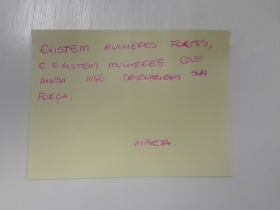 EXISTEM MULHERES FORTES,
E EXISTEM MULHERES QUE
AINDA NÃO DESCOBRIRAM SUA
FORÇA.